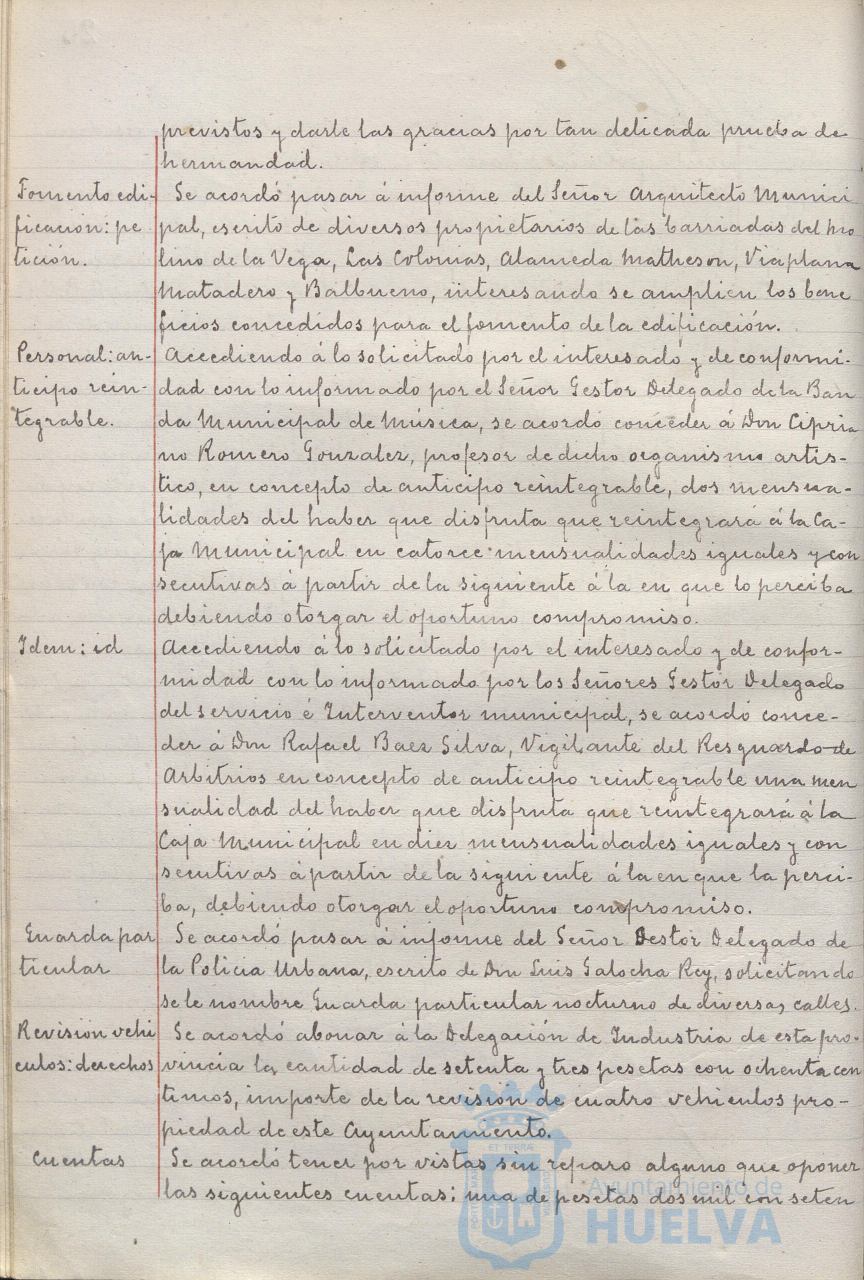 previstos y darle las gracias por tan delicada prueba de
hermandad.
Fomento edi-
ficación: pe
tición.
Se acordó pasar á informe del Señor Arquitecto Munici
pal, escrito de diversos propietarios de las barriadas del Mo
lino de la Vega, Las Colonias, Alameda Matheson, Viaplana
Matadero y Balbueno, interesando se amplien los bene
ficios concedidos para el fomento de la edificación.
Personal: an-
ticipo rein-
tegrable.
Accediendo á lo solicitado por el interesado y de conformi-
dad con lo informado por el Señor Gestor Delegado de la Ban
da Municipal de Música, se acordó conceder á Don Cipria
no Romero Gonzalez, profesor de dicho organismo artis-
tico, en concepto de anticipo reintegrable, dos mensua-
lidades del haber que disfruta que reintegrará á la Ca-
ja Municipal en catorce mensualidades iguales y con
secutivas á partir de la siguiente á la en que lo perciba
debiendo otorgar el oportuno compromiso.
Idem: id
Accediendo á lo solicitado por el interesado y de confor-
midad con lo informado por los Señores Gestor Delegado
del servicio é Interventor municipal, se acordó conce-
der á Don Rafael Baez Silva, Vigilante del Resguardo de
Arbitrios en concepto de anticipo reintegrable una men
sualidad del haber que disfruta que reintegrará á la
Caja Municipal en diez mensualidades iguales y con
secutivas á partir de la siguiente á la en que la perci-
ba, debiendo otorgar el oportuno compromiso.
Guarda par
ticular
Se acordó pasar á informe del Señor Gestor Delegado de
la Policia Urbana, escrito de Don Luis Galocha Rey, solicitando
se le nombre Guarda particular nocturno de diversas calles.
Revisión vehi
culos: derechos
Se acordó abonar á la Delegación de Industria de esta pro-
vincia la cantidad de setenta y tres pesetas con ochenta cen
timos, importe de la revisión de cuatro vehiculos pro-
piedad de este Ayuntamiento.
Cuentas
Se acordó tener por vistas sin reparo alguno que oponer
las siguientes cuentas: una de pesetas dos mil con seten
Ayuntamiento de
HUELVA